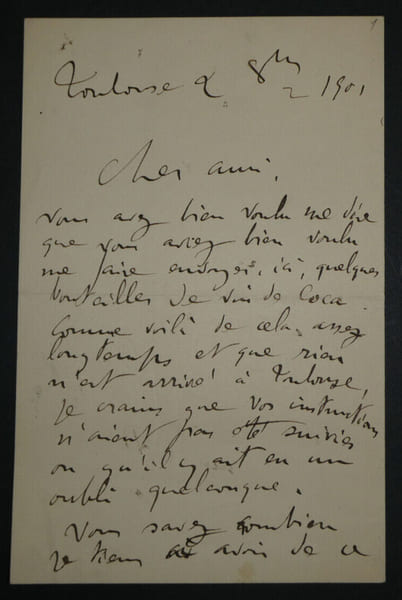 Toulouse 2 8bre 1901
Cher ami,
Vous avez bien voulu me dire
que vous aviez bien voulu
me faire envoyer, ici, quelques
bouteilles de vin de Coca.
Comme voilà de cela assez
longtemps et que rien
n'est arrivé à Toulouse,
je crains que vos instructions
n'aient pas été suivies
ou qu'il y ait eu un
oubli quelconque.
Vous savez combien
je tiens à avoir de ce